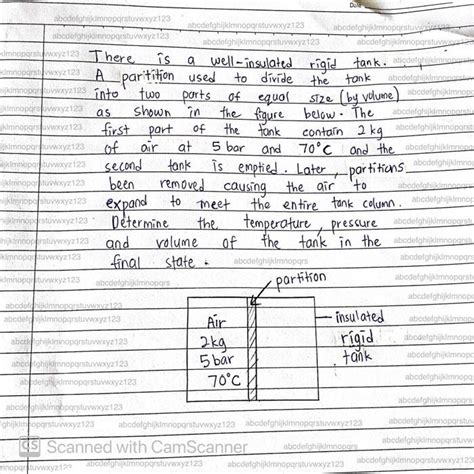 Date
There is a well-insulated rigid tank.
A partition used to divide the tank
into two parts of equal size (by volume)
as shown in the figure below. The
first part of the tank contain 2 kg
of air at 5 bar and 70°C and the
second tank is emptied. Later, partitions
been removed causing the air to
expand to meet the entire tank column.
Determine the temperature, pressure
and volume of the tank in the
final state.
partition
Air
2kg
5 bar
70°C
insulated
rigid
tank
CS Scanned with CamScanner